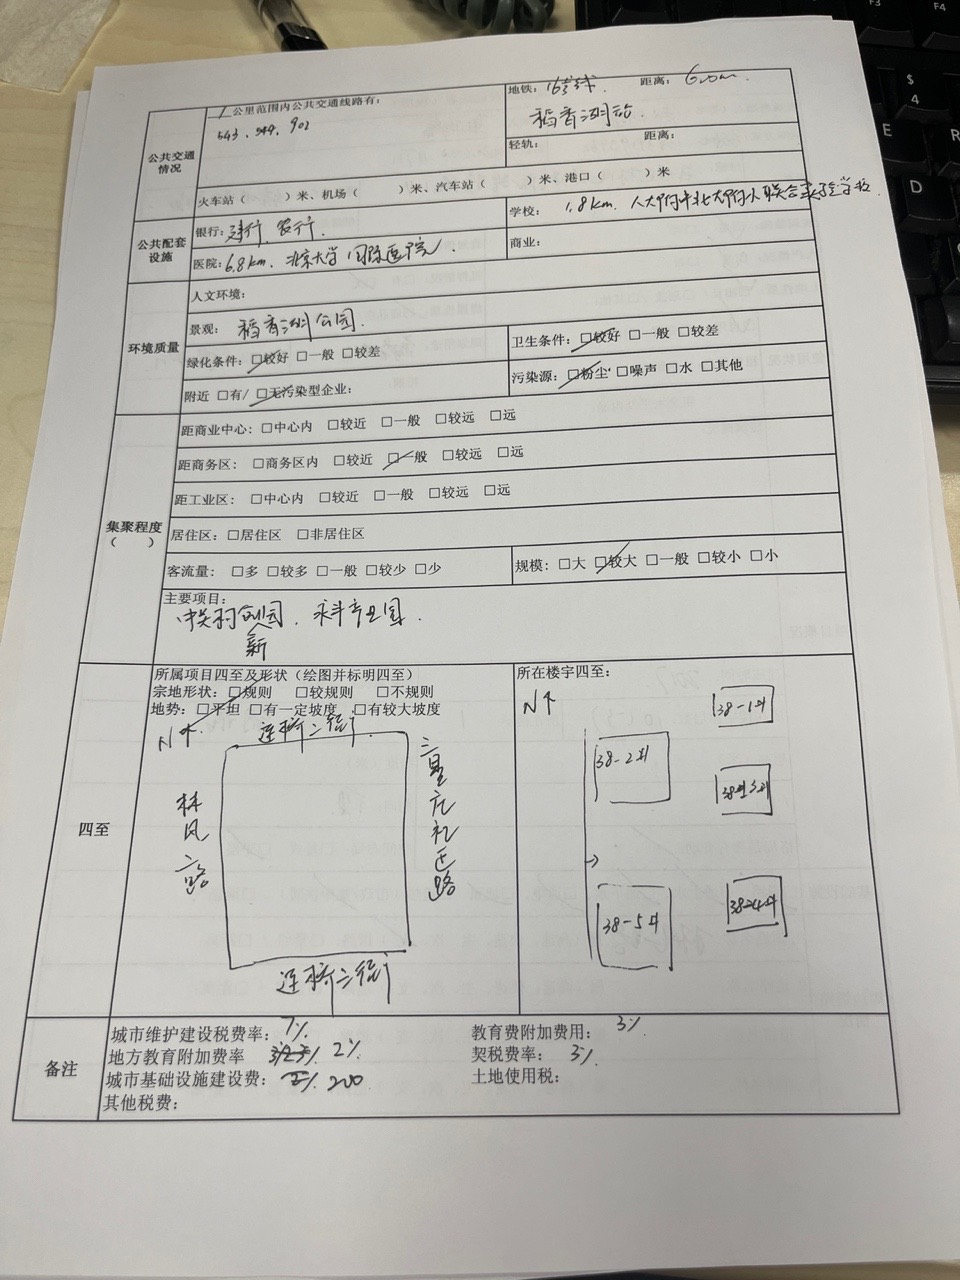 公共交通情况
1公里范围内公共交通线路有:
543、549、902
地铁: 16号线. 距离: 600m
稻香湖站.
轻轨: 距离:
火车站（ ）米、机场（ ）米、汽车站（ ）米、港口（ ）米
公共配套设施
银行: 建行、农行.
学校: 1.8km. 人大附中北大附小联合实验学校
医院: 6.8km. 北京大学国际医院
商业:
环境质量
人文环境:
景观: 稻香湖公园.
绿化条件: □较好 □一般 □较差
卫生条件: □较好 □一般 □较差
附近 □有/ □无污染型企业:
污染源: □粉尘 □噪声 □水 □其他
集聚程度
（ ）
距商业中心: □中心内 □较近 □一般 □较远 □远
距商务区: □商务区内 □较近 □一般 □较远 □远
距工业区: □中心内 □较近 □一般 □较远 □远
居住区: □居住区 □非居住区
客流量: □多 □较多 □一般 □较少 □少
规模: □大 □较大 □一般 □较小 □小
主要项目:
中关村创新园、 产业园.
四至
所属项目四至及形状（绘图并标明四至）
宗地形状: □规则 □较规则 □不规则
地势: □平坦 □有一定坡度 □有较大坡度
N↑
林风二路
所在楼宇四至:
N↑
38-1#
38-2#
38-3#
38-4#
38-5#
备注
城市维护建设税费率: 7%
教育费附加费用: 3%
地方教育附加费率 2%
契税费率: 3%
城市基础设施建设费: 200
土地使用税:
其他税费: